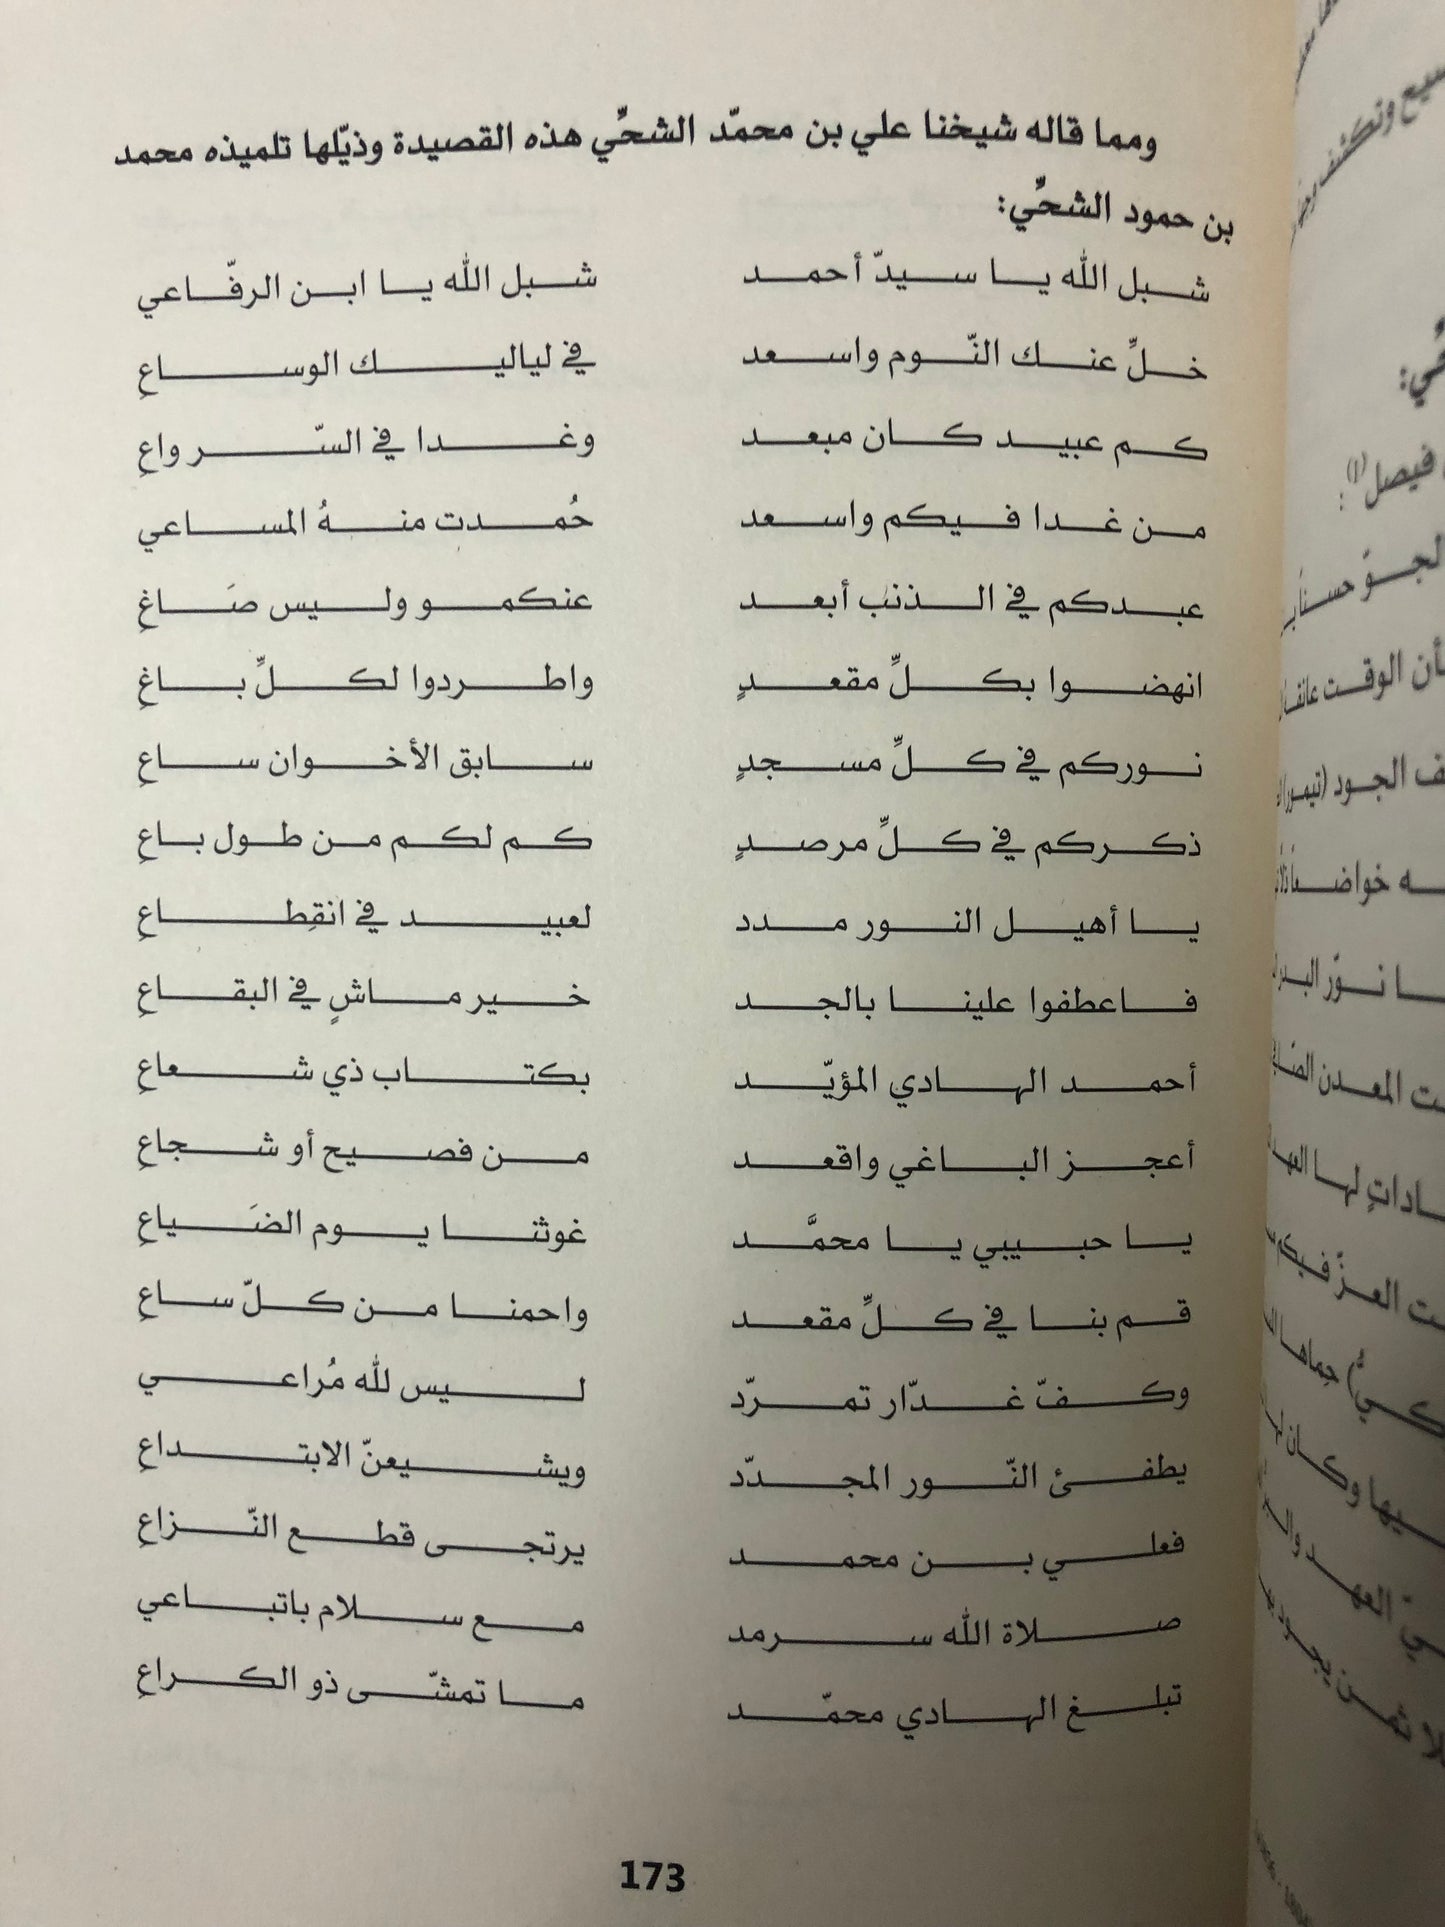 ومما قاله شيخنا علي بن محمّد الشحِّي هذه القصيدة وذيّلها تلميذه محمد
بن حمود الشحِّي:
شبل الله يا سيدّ أحمد شبل الله يا ابن الرفّاعي
خلِّ عنك النّوم واسعد في لياليك الوساعِ
كم عبيد كان مبعد وغدا في السّر واعِ
من غدا فيكم واسعد حُمدت منهُ المساعي
عبدكم في الذنب أبعد عنكمو وليس صَاغِ
انهضوا بكلِّ مقعدٍ واطردوا لكلِّ باغِ
نوركم في كلِّ مسجدٍ سابق الأخوان ساعِ
ذكركم في كلِّ مرصدٍ كم لكم من طول باعِ
يا أهيل النور مدد لعبيد في انقِطاعِ
فاعطفوا علينا بالجد خير ماشٍ في البقاعِ
أحمد الهادي المؤيّد بكتاب ذي شعاعِ
أعجز الباغي واقعد من فصيح أو شجاعِ
يا حبيبي يا محمَّد غوثنا يوم الضَياعِ
قم بنا في كلِّ مقعد واحمنا من كلّ ساعِ
وكفّ غدّار تمرّد ليس لله مُراعي
يطفئ النّور المجدّد ويشيعنّ الابتداعِ
فعلي بن محمد يرتجى قطع النّزاعِ
صلاة الله سرمد مع سلام باتباعي
تبلغ الهادي محمّد ما تمشّى ذو الكراعِ
173
فيصل(١):